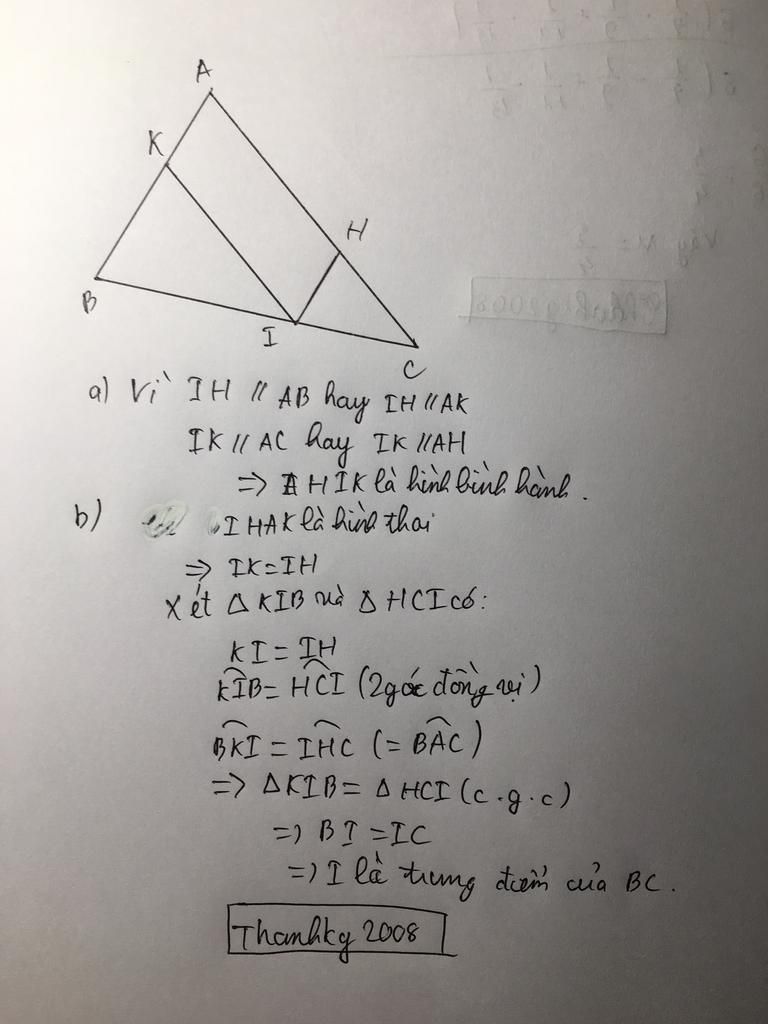 A
K
H
B
I
C
a) Vì IH // AB hay IH // AK
IK // AC hay IK // AH
=> AHIK là hình bình hành.
b) IHAK là hình thoi
=> IK = IH
Xét Δ KIB và Δ HCI có:
KI = IH
KIB = HCI (2 góc đồng vị)
BKI = IHC (= BAC)
=> Δ KIB = Δ HCI (c.g.c)
=> BI = IC
=> I là trung điểm của BC.
Thanhkg 2008